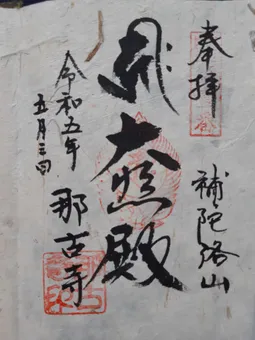 奉拝
補陀落山
大悲殿
令和五年
五月三日
那古寺